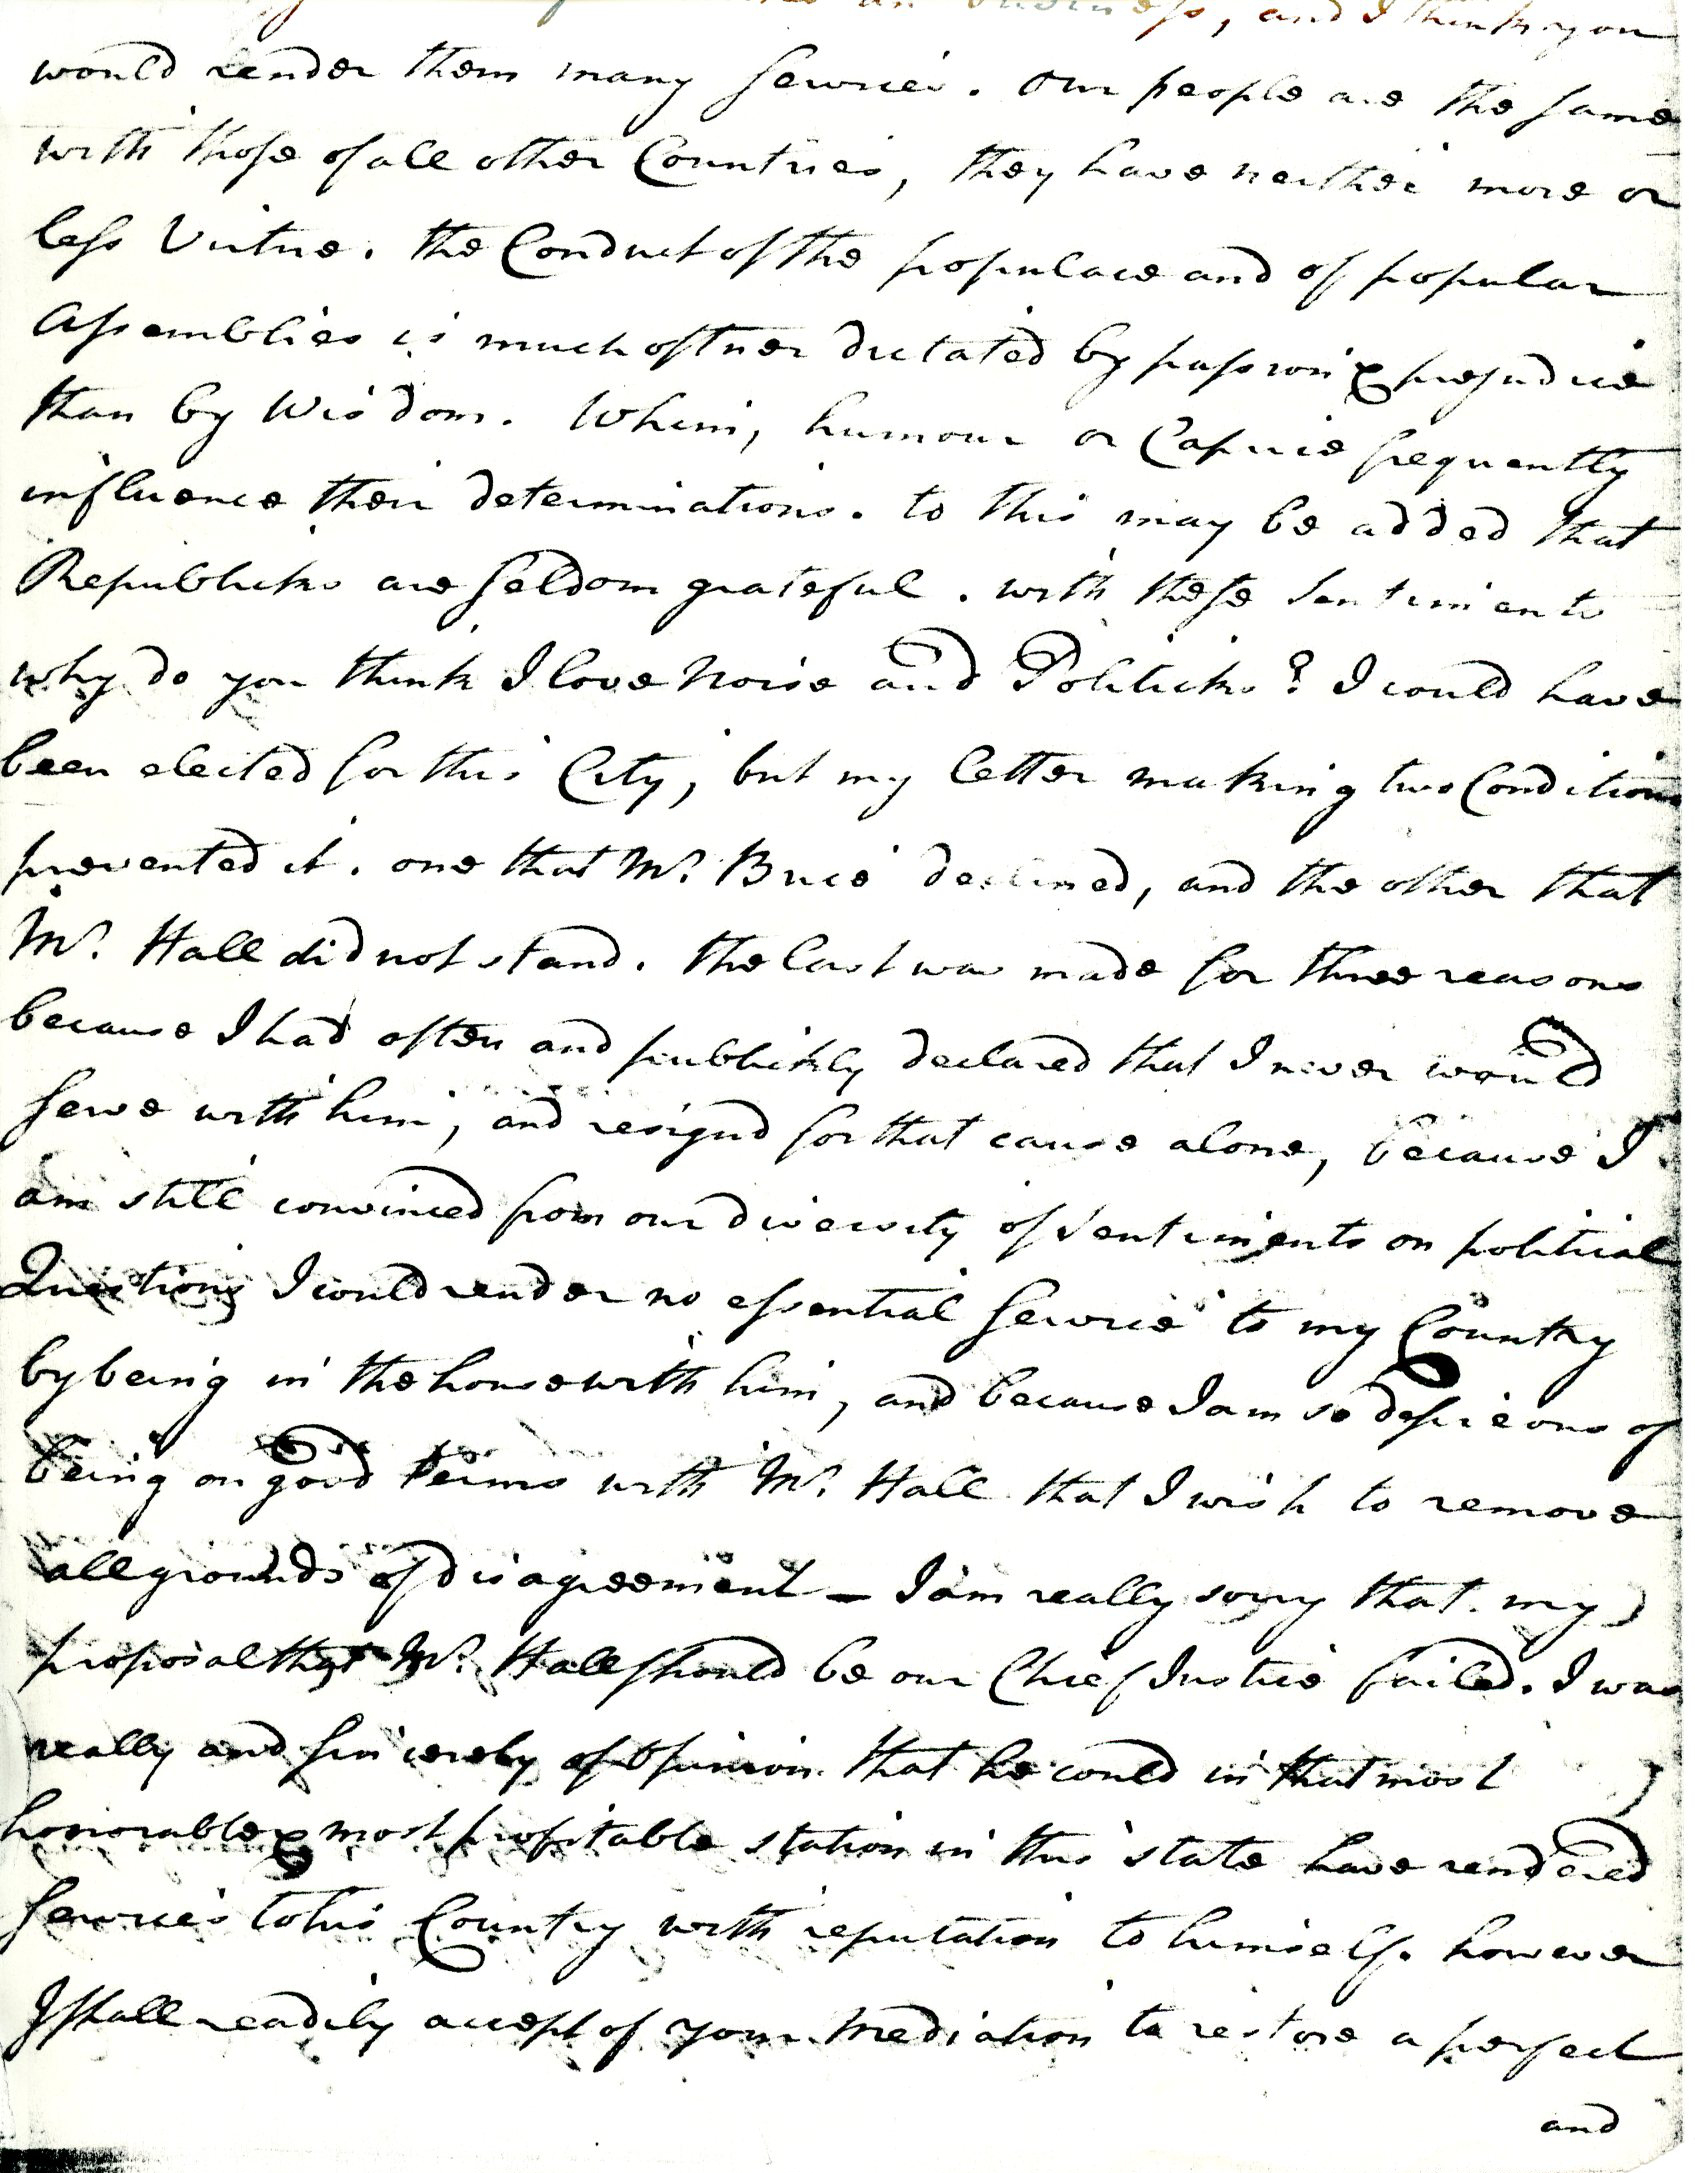 and I think you
would render them many Services. Our people are the same
with those of all other Countries, they have neither more or
less Virtue. the Conduct of the populace and of popular
Assemblies is much oftner dictated by passion & prejudice
than by Wisdom. Whim, humour or Caprice frequently
influence their determinations. to this may be added that
Republicks are seldom grateful. with these Sentiments
why do you think I love Noise and Politicks? I could have
been elected for this City, but my letter making two Conditions
prevented it. one that Mr. Brice declined, and the other that
Mr. Hall did not stand. the last was made for three reasons
because I had often and publickly declared that I never would
serve with him, and resignd for that cause alone, because I
am still convinced from our diversity of sentiments on political
Questions I could render no essential Service to my Country
by being in the house with him, and because I am so desireous of
being on good terms with Mr. Hall that I wish to remove
all grounds of disagreement – I am really sorry that my
proposal that Mr. Hall should be our Chief Justice failed. I was
really and sincerely of opinion that he could in that most
honorable & most profitable station in this state have rendered
Services to his Country with reputation to himself. however
I shall readily accept of your Mediation to restore a perfect
and